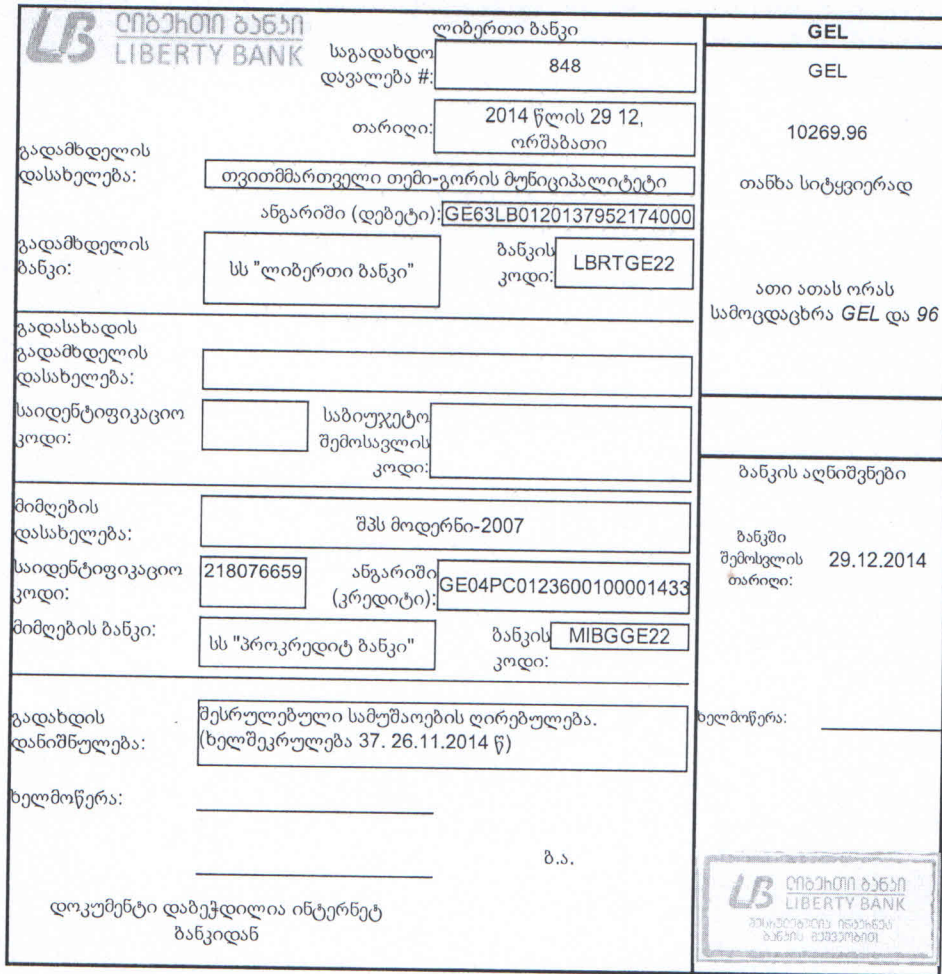 ლიბერთი ბანკი
LIBERTY BANK
ლიბერთი ბანკი
საგადახდო
დავალება #:
848
თარიღი:
2014 წლის 29 12,
ორშაბათი
გადამხდელის
დასახელება:
თვითმმართველი თემი-გორის მუნიციპალიტეტი
ანგარიში (დებეტი):
GE63LB0120137952174000
გადამხდელის
ბანკი:
სს "ლიბერთი ბანკი"
ბანკის
კოდი:
LBRTGE22
გადასახადის
გადამხდელის
დასახელება:
საიდენტიფიკაციო
კოდი:
საბიუჯეტო
შემოსავლის
კოდი:
მიმღების
დასახელება:
შპს მოდერნი-2007
საიდენტიფიკაციო
კოდი:
218076659
ანგარიში
(კრედიტი):
GE04PC0123600100001433
მიმღების ბანკი:
სს "პროკრედიტ ბანკი"
ბანკის
კოდი:
MIBGGE22
გადახდის
დანიშნულება:
შესრულებული სამუშაოების ღირებულება.
(ხელშეკრულება 37. 26.11.2014 წ)
ხელმოწერა:
ბ.ა.
დოკუმენტი დაბეჭდილია ინტერნეტ
ბანკიდან
GEL
GEL
10269.96
თანხა სიტყვიერად
ათი ათას ორას
სამოცდაცხრა GEL და 96
ბანკის აღნიშვნები
ბანკში
შემოსვლის
თარიღი:
29.12.2014
ხელმოწერა:
ლიბერთი ბანკი
LIBERTY BANK
შესრულებულია ინტერნეტ
ბანკის მეშვეობით